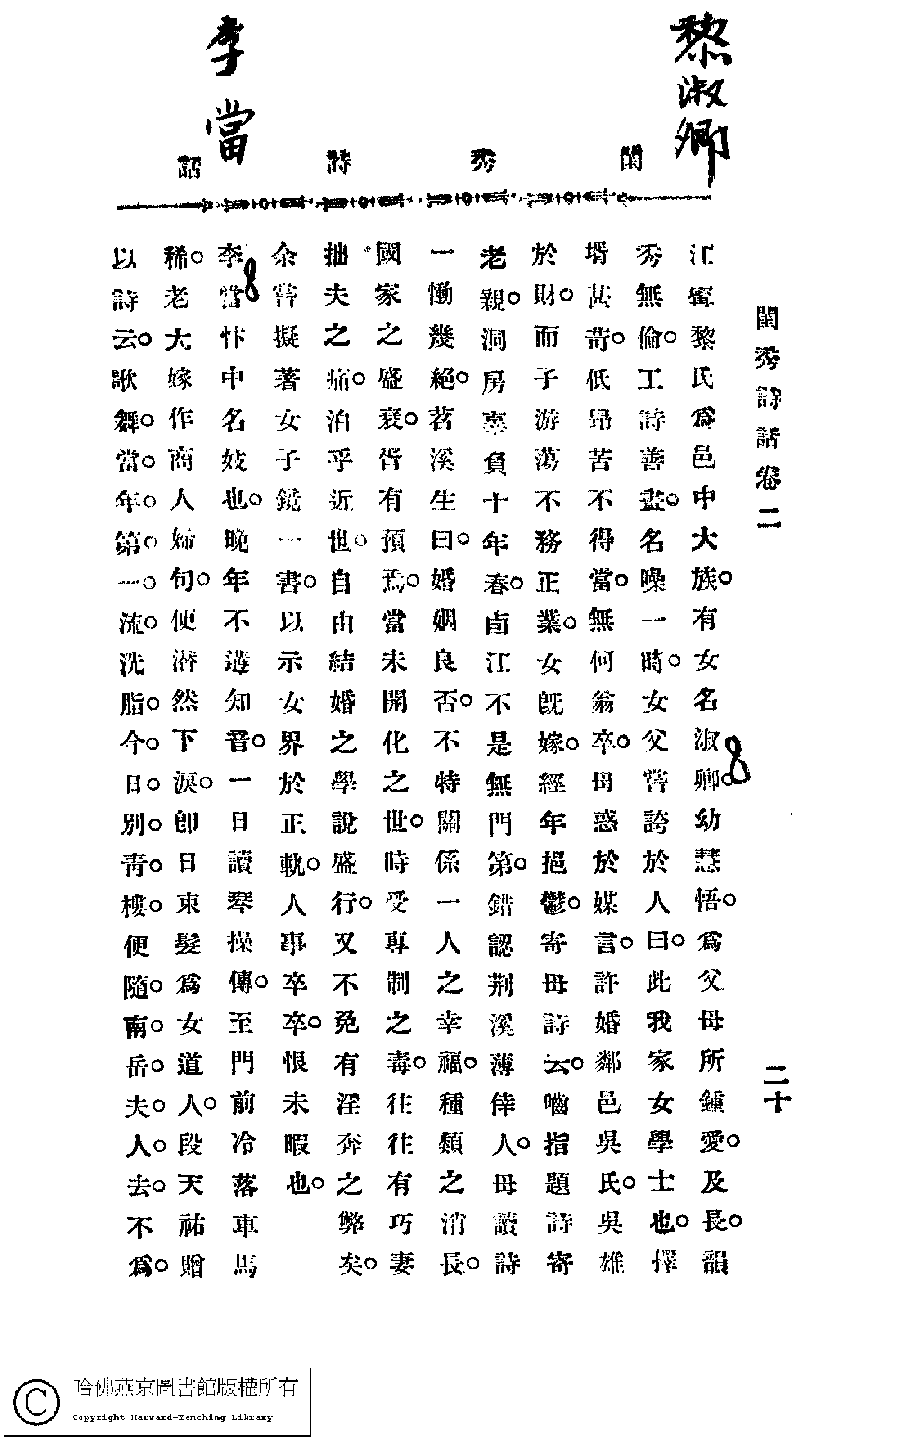 黎淑卿
李當
閨秀詩話
閨秀詩話卷二
二十
江寧黎氏爲邑中大族。有女名淑卿。幼慧悟。爲父母所鍾愛。及長。韻
秀無倫。工詩善畫。名噪一時。女父嘗誇於人曰。此我家女學士也。擇
壻甚苛。低昂苦不得當。無何翁卒。母惑於媒言。許婚鄰邑吳氏。吳雄
於財。而子游蕩不務正業。女旣嫁。經年挹鬱。寄母詩云。嚙指題詩寄
老親。洞房辜負十年春。西江不是無門第。錯認荆溪薄倖人。母讀詩
一慟幾絕。茗溪生曰。婚姻良否。不特關係一人之幸福。種類之消長。
國家之盛衰。胥有預焉。當未開化之世。時受專制之毒。往往有巧妻
拙夫之痛。泊乎近世。自由結婚之學說盛行。又不免有淫奔之弊矣。
余嘗擬著女子鏡一書。以示女界於正軌。人事卒卒。恨未暇也。
李當忭中名妓也。晚年不遘知音。一日讀琴操傳。至門前冷落車馬
稀。老大嫁作商人婦句。便潸然下淚。卽日束髮爲女道人。段天祐贈
以詩云。歌舞當年第一流。洗脂今日別靑樓。便隨南岳夫人去。不爲
哈佛燕京圖書館版權所有
Copyright Harvard-Yenching Library